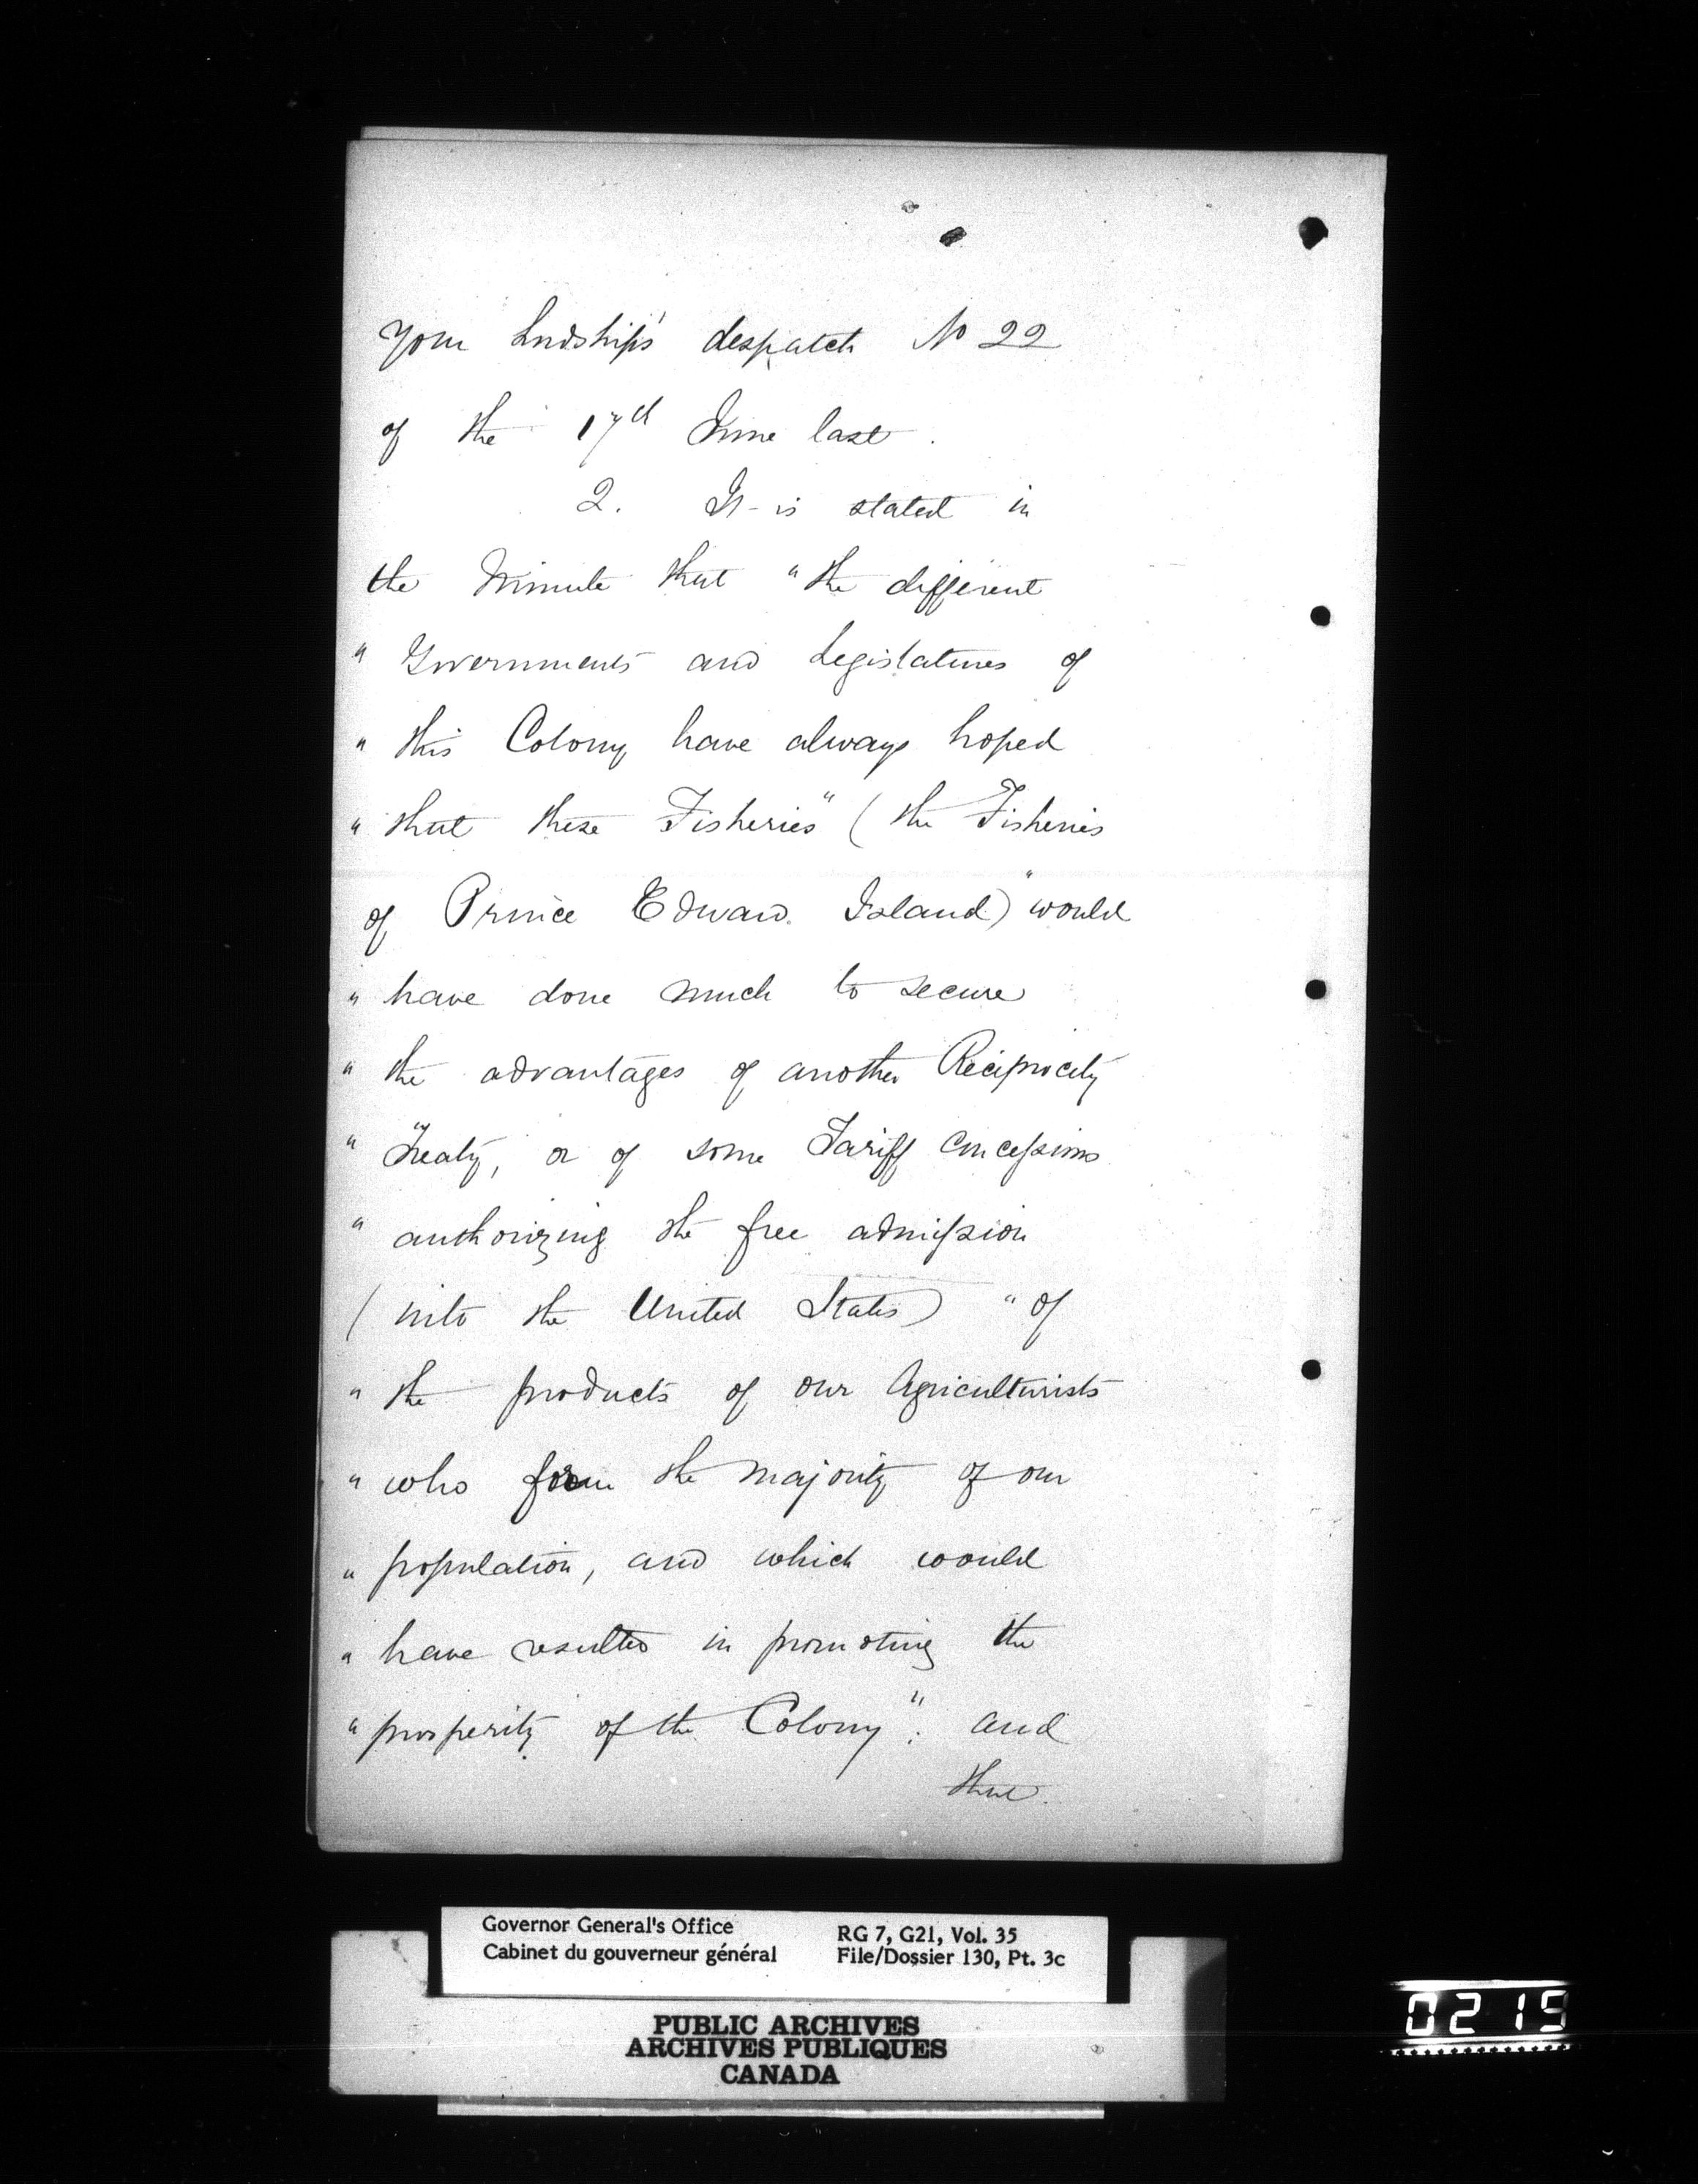 Your Lordship's despatch No 22
of the 17th June last.
2. It is stated in
the Minute that "the different
" Governments and Legislatures of
" this Colony have always hoped
" that these Fisheries" (the Fisheries
of Prince Edward Island) "would
" have done much to secure
" the advantages of another Reciprocity
" Treaty, or of some Tariff concessions
" authorizing the free admission
(into the United States) "of
" the products of our Agriculturists
" who form the majority of our
" population, and which would
" have resulted in promoting the
" prosperity of the Colony": and
that
Governor General's Office
Cabinet du gouverneur général
RG 7, G21, Vol. 35
File/Dossier 130, Pt. 3c
PUBLIC ARCHIVES
ARCHIVES PUBLIQUES
CANADA
0215